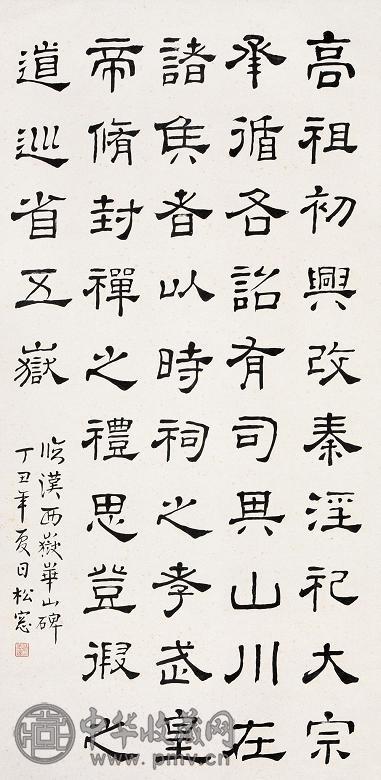 高祖初興改秦淫祀大宗
承循各詔有司其山川在
諸侯者以時祠之孝武皇
帝脩封禪之禮思登徦之
道巡省五嶽
臨漢西嶽華山碑
丁丑年夏日松窗
中华收藏网
www.pmcv.cn